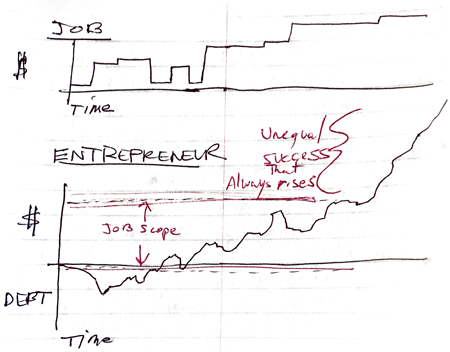 JOB
$
Time
ENTREPRENEUR
Unequal
success
That
Always rises
$
JOB scope
DEBT
Time